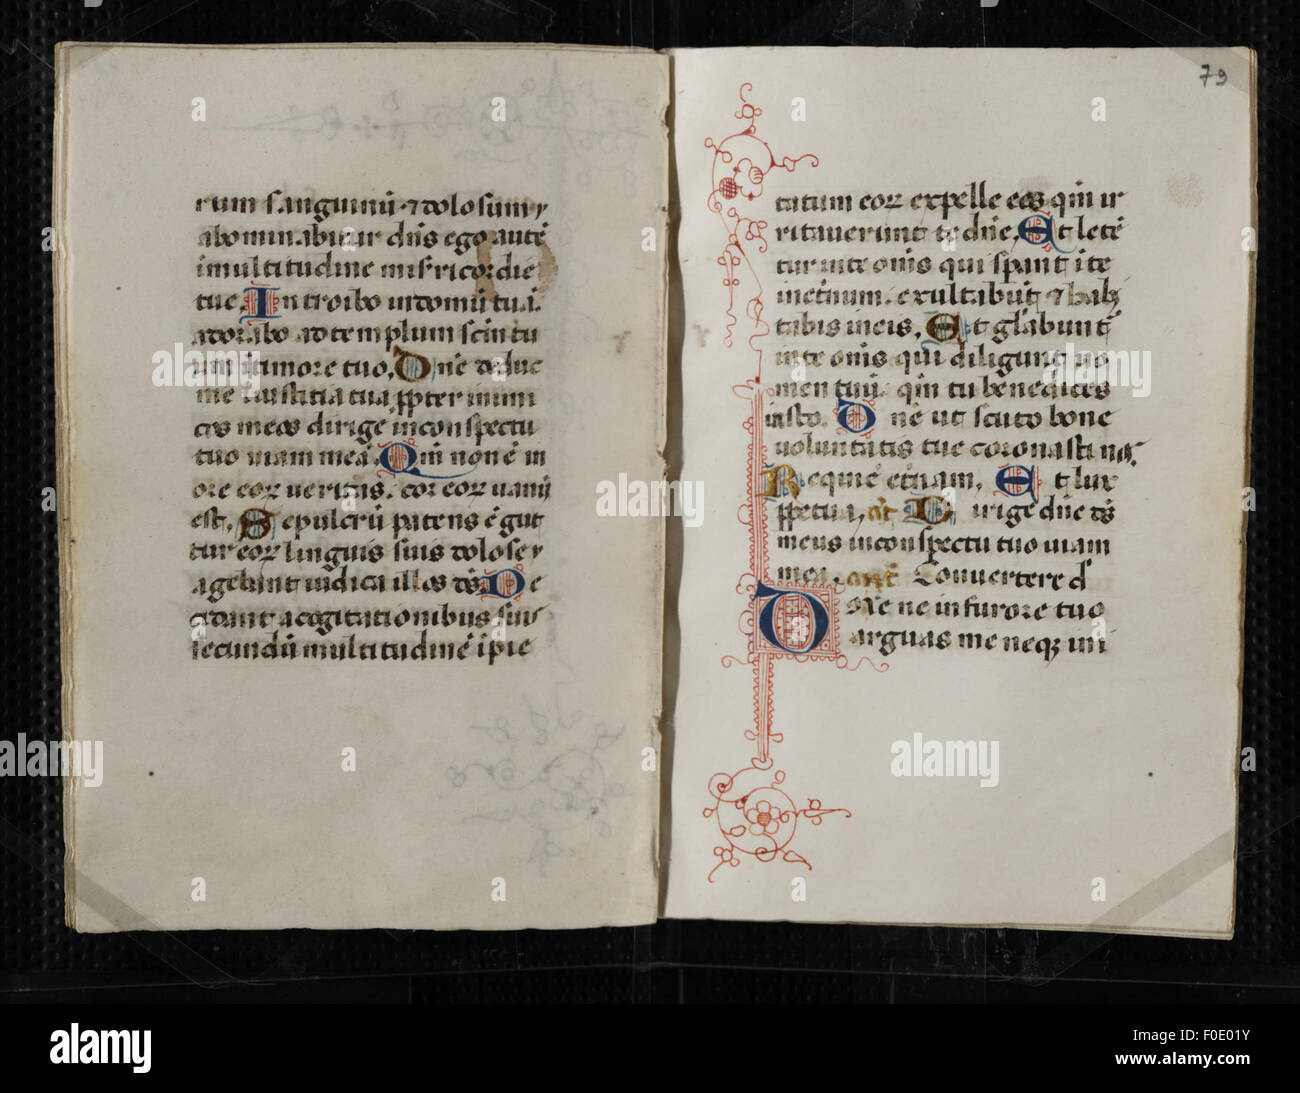 rum sanguinũ ⁊ dolosum
abominabitur dñs ego autẽ
i multitudine misricordie
tue. Introibo in domũ tuã.
adorabo ad templum sc̃m tu
um in timore tuo. Dñe deduc
me i iustitia tua ꝓpter inimi
cos meos dirige in conspectu
tuo viam meã. Qm̃ non ẽ in
ore eoꝝ veritas. cor eoꝝ vanũ
est. Sepulcrũ patens ẽ gut
tur eoꝝ linguis suis dolose
agebant iudica illos ds̃. De
cidant a cogitationibus suis
secundũ multitudinẽ ipie
79
tatum eoꝝ expelle eos qm̃ ir
ritaverunt te dñe. Et letẽ
tur in te om̃s qui spant i te
in eternum. exultabũt ⁊ hab
tabis in eis. Et gl̃abunt
in te om̃s qui diligunt no
men tuũ. qm̃ tu benedices
iusto. Dñe ut scuto bone
voluntatis tue coronasti nos.
Requiẽ etnam. Et lux
ꝑpetua. añ Dirige dñe ds̃
meus in conspectu tuo viam
meã. añt Convertere d
Domĩe ne in furore tuo
arguas me neqꝫ in
alamy stock photo
alamy
a
F0E01Y
www.alamy.com